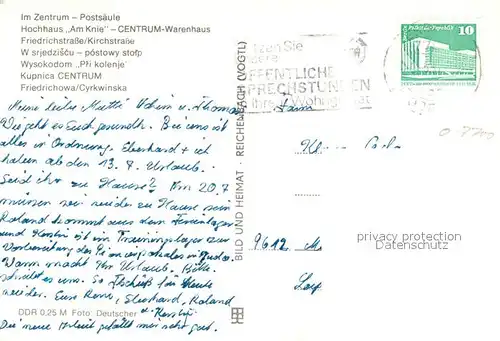 Im Zentrum – Postsäule
Hochhaus „Am Knie" – CENTRUM-Warenhaus
Friedrichstraße/Kirchstraße
W srjedźišću – póstowy stołp
Wysokodom „Při kolenje"
Kupnica CENTRUM
Friedrichowa/Cyrkwinska
Meine liebe Mutti, u. Thomas
Wie geht es Euch gesundh. Bei uns ist
alles in Ordnung. Eberhard + ich
haben ab den 13.7. Urlaub.
Seid ihr zu Hause? Am 20.7
müssen wir wieder zu Hause sein
Roland kommt aus dem Ferienlager
und Kerstin ist im Trainingslager zur
Vorbereitung des Pionierpokales in Judo.
Wann macht Ihr Urlaub. Bitte
schreibt es uns. So Tschüß für heute
wieder. Eure Eberhard, Roland
u. Kerstin
DDR 0,25 M Foto: Deutscher
Die neue Arbeit gefällt mir recht gut.
BILD UND HEIMAT · REICHENBACH (VOGTL)
zen Sie
FFENTLICHE
PRECHSTUNDEN
10
9612
privacy protection
Datenschutz